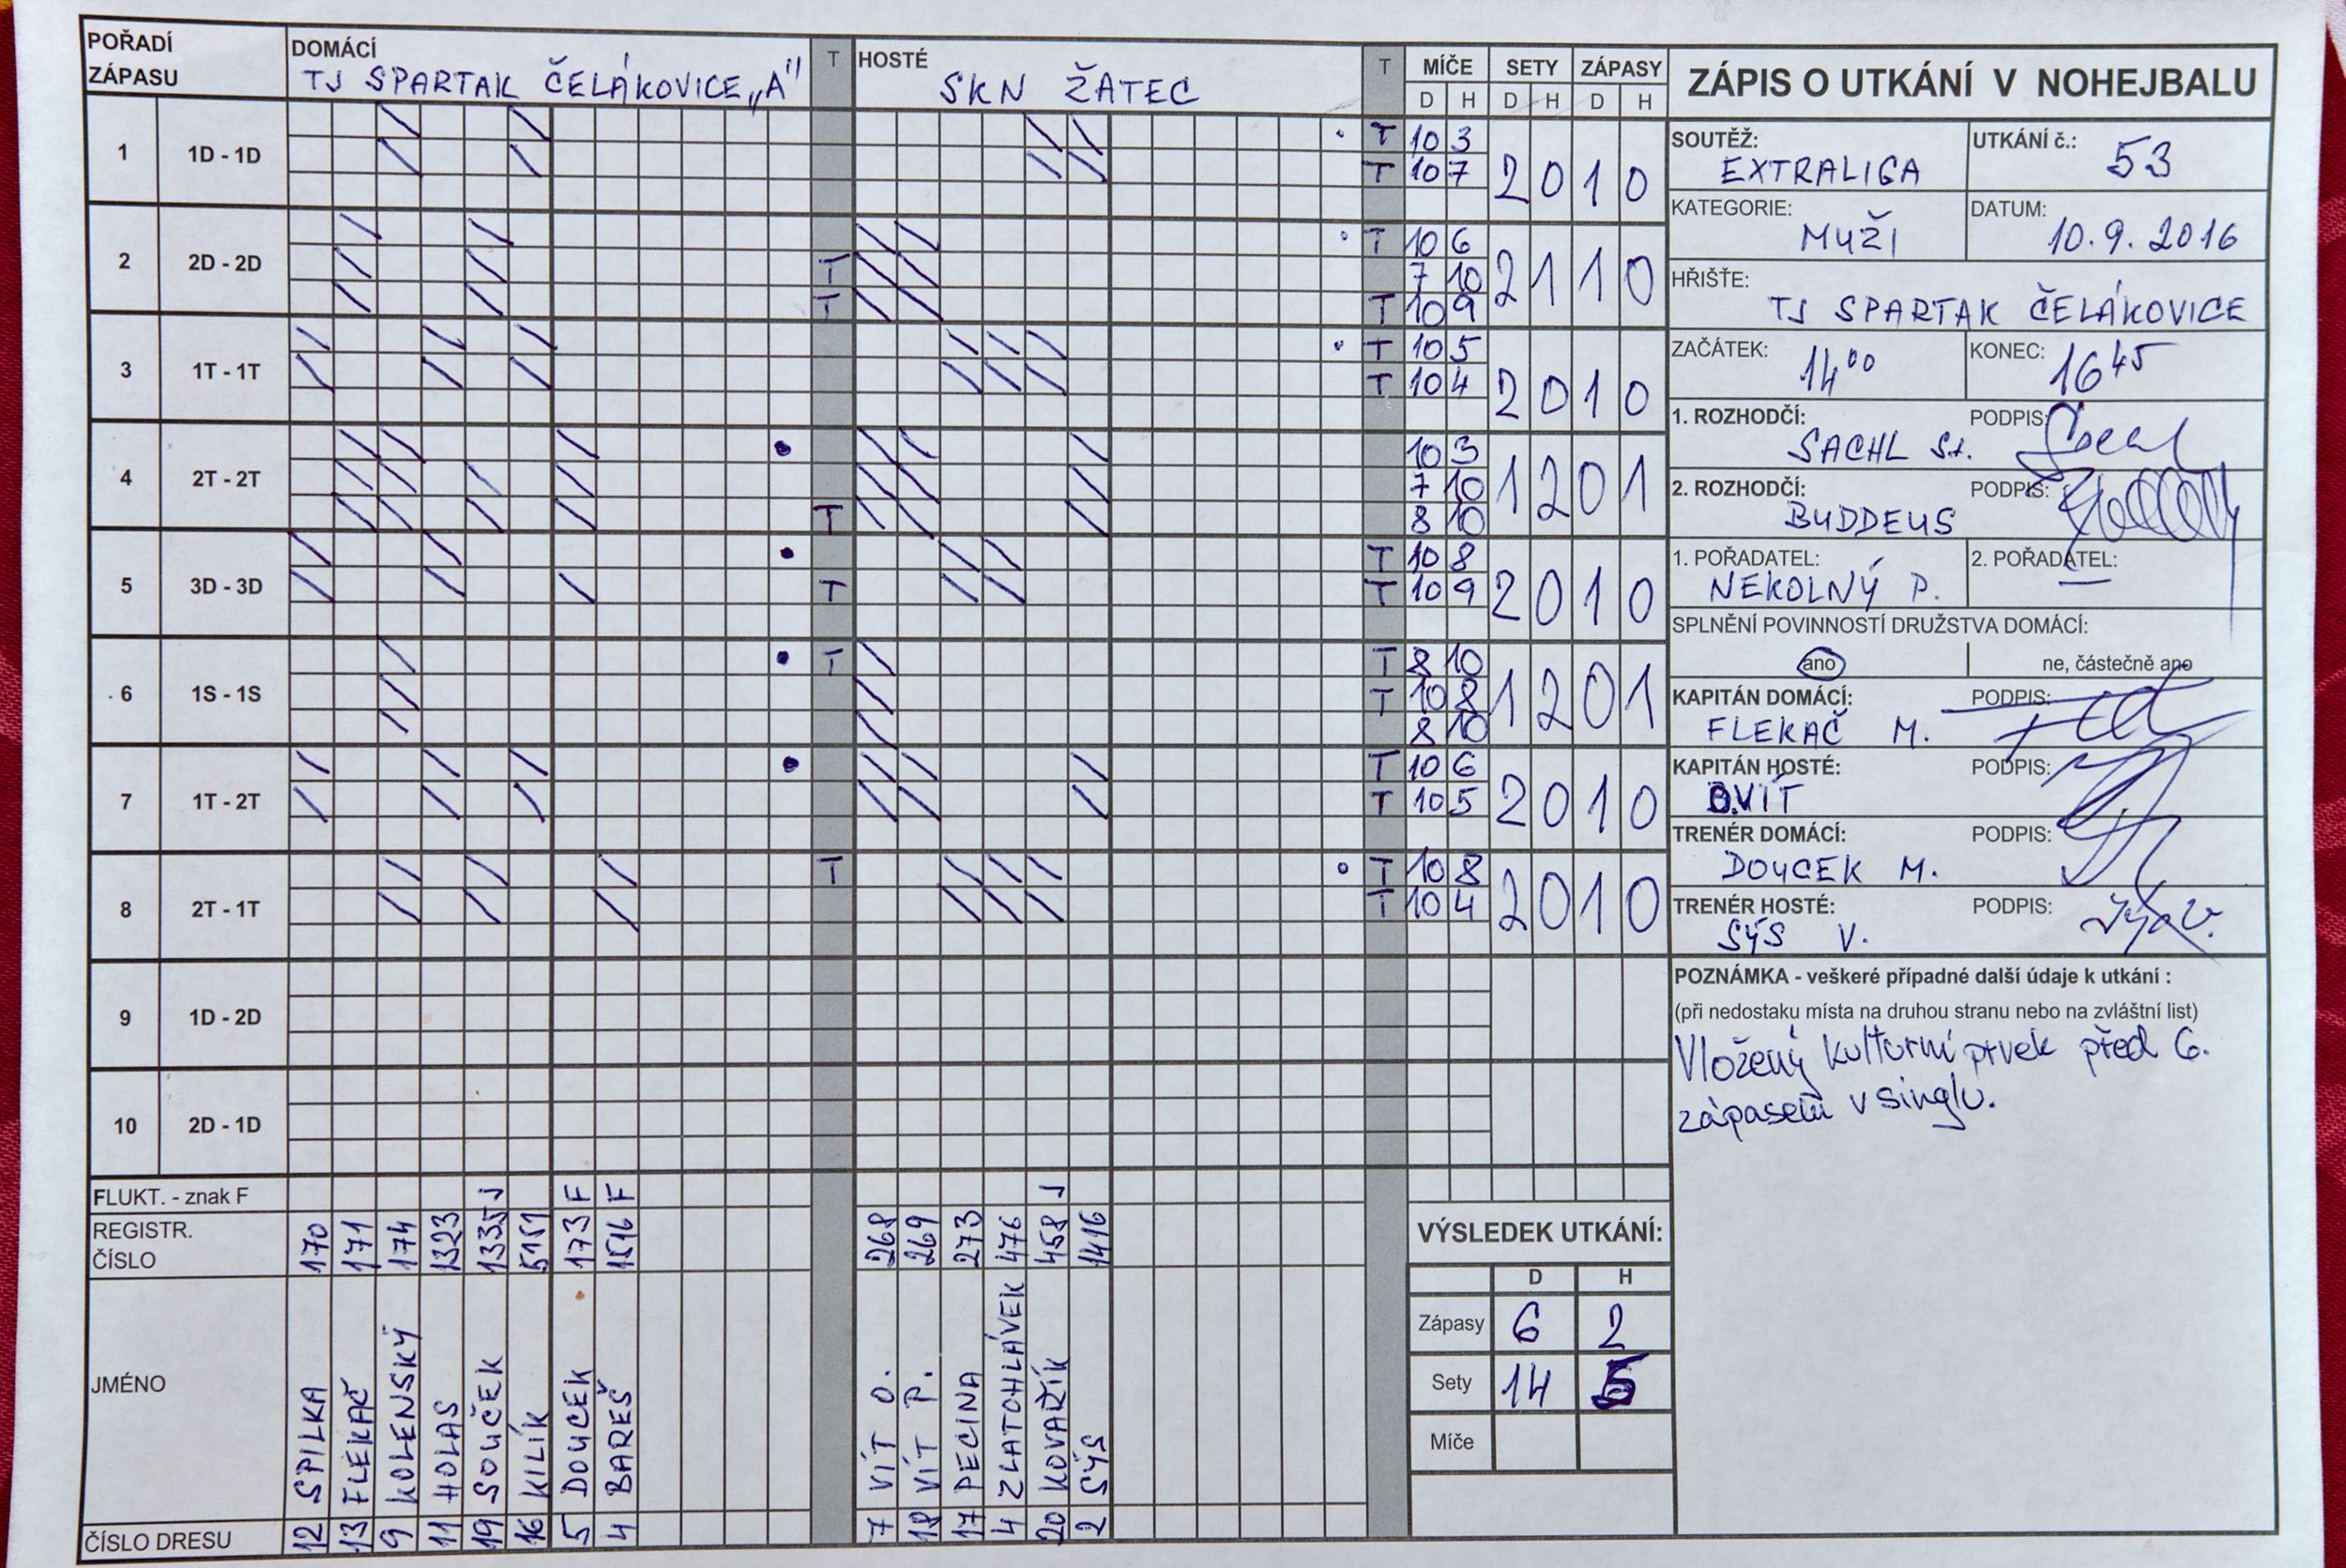 POŘADÍ ZÁPASU
DOMÁCÍ
TJ SPARTAK ČELÁKOVICE „A"
T
HOSTÉ
SKN ŽATEC
T
MÍČE SETY ZÁPASY
D H D H D H
1 1D - 1D T 10 3 2 0 1 0
T 10 7
2 2D - 2D T 10 6 2 1 1 0
T 7 10
T T 10 9
3 1T - 1T T 10 5 2 0 1 0
T 10 4
4 2T - 2T 10 3 1 2 0 1
7 10
T 8 10
5 3D - 3D T 10 8 2 0 1 0
T T 10 9
6 1S - 1S T T 8 10 1 2 0 1
T 10 8
8 10
7 1T - 2T T 10 6 2 0 1 0
T 10 5
8 2T - 1T T T 10 8 2 0 1 0
T 10 4
9 1D - 2D
10 2D - 1D
FLUKT. - znak F J F F J
REGISTR. ČÍSLO 170 171 174 1323 1335 5151 173 1516 268 269 273 476 458 1416
JMÉNO SPILKA FLEKAČ KOLENSKÝ HOLAS SOUČEK KILÍK DOUCEK BAREŠ VÍT O. VÍT P. PECINA ZLATOHLÁVEK KOVAŘÍK SÝS
ČÍSLO DRESU 12 13 9 11 19 16 5 4 7 18 17 4 20 2
ZÁPIS O UTKÁNÍ V NOHEJBALU
SOUTĚŽ: EXTRALIGA
UTKÁNÍ č.: 53
KATEGORIE: MUŽI
DATUM: 10.9.2016
HŘIŠTĚ: TJ SPARTAK ČELÁKOVICE
ZAČÁTEK: 14⁰⁰
KONEC: 16⁴⁵
1. ROZHODČÍ: SACHL St.
PODPIS:
2. ROZHODČÍ: BUDDEUS
PODPIS:
1. POŘADATEL: NEKOLNÝ P.
2. POŘADATEL: —
SPLNĚNÍ POVINNOSTÍ DRUŽSTVA DOMÁCÍ:
ano
ne, částečně ano
KAPITÁN DOMÁCÍ: FLEKAČ M.
PODPIS:
KAPITÁN HOSTÉ: O.VÍT
PODPIS:
TRENÉR DOMÁCÍ: DOUCEK M.
PODPIS:
TRENÉR HOSTÉ: SÝS V.
PODPIS:
POZNÁMKA - veškeré případné další údaje k utkání :
(při nedostaku místa na druhou stranu nebo na zvláštní list)
Vložený kulturní prvek před 6.
zápasem v singlu.
VÝSLEDEK UTKÁNÍ:
D H
Zápasy 6 2
Sety 14 5
Míče